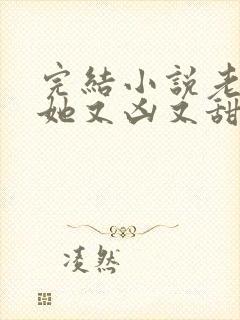 完結小說老
她又凶又甜
凌然